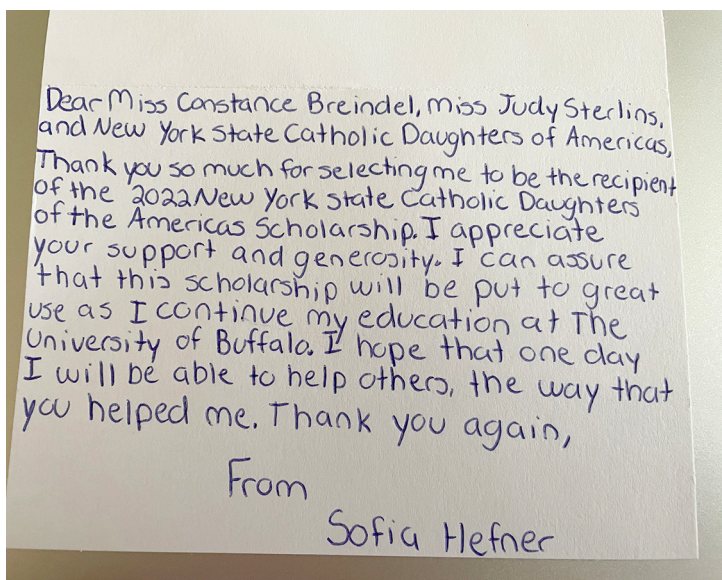 Dear Miss Constance Breindel, Miss Judy Sterlins,
and New York State Catholic Daughters of Americas,
Thank you so much for selecting me to be the recipient
of the 2022 New York State Catholic Daughters
of the Americas Scholarship. I appreciate
your support and generosity. I can assure
that this scholarship will be put to great
use as I continue my education at The
University of Buffalo. I hope that one day
I will be able to help others, the way that
you helped me. Thank you again,
From
Sofia Hefner